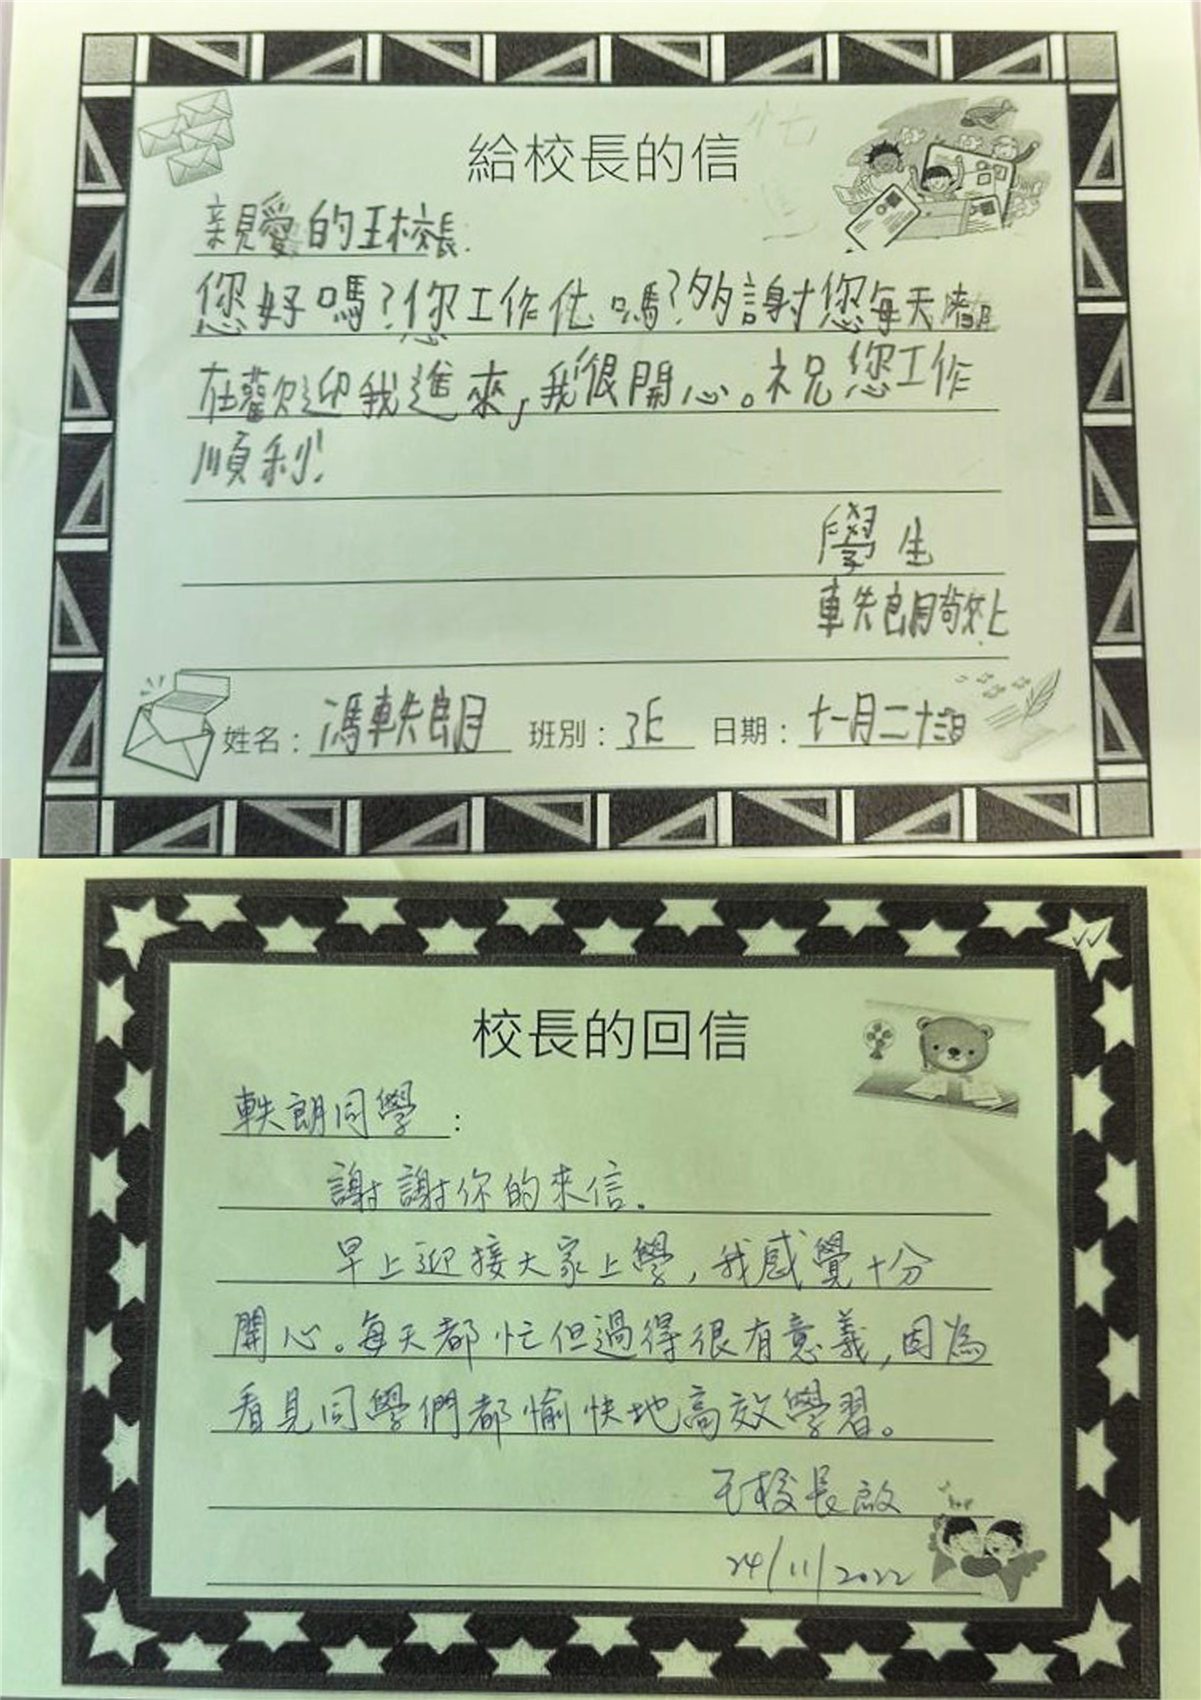 給校長的信
親愛的王校長:
您好嗎？您工作忙嗎？多謝您每天都
在歡迎我進來，我很開心。祝您工作
順利！
學生
軼朗敬上
姓名：馮軼朗 班別：3E 日期：十一月二十三日
校長的回信
軼朗同學：
謝謝你的來信。
早上迎接大家上學，我感覺十分
開心。每天都忙但過得很有意義，因為
看見同學們都愉快地高效學習。
王校長啟
24/11/2022